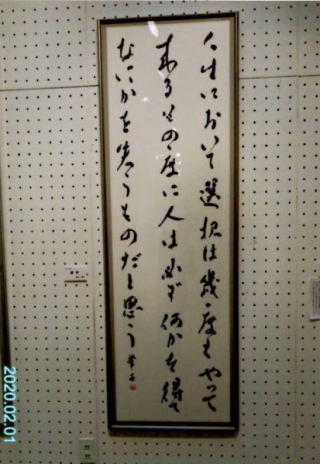 人生において選択は幾度もやって
来るその度に人は必ず何かを得て
なにかを失うものだと思う
2020.02.01